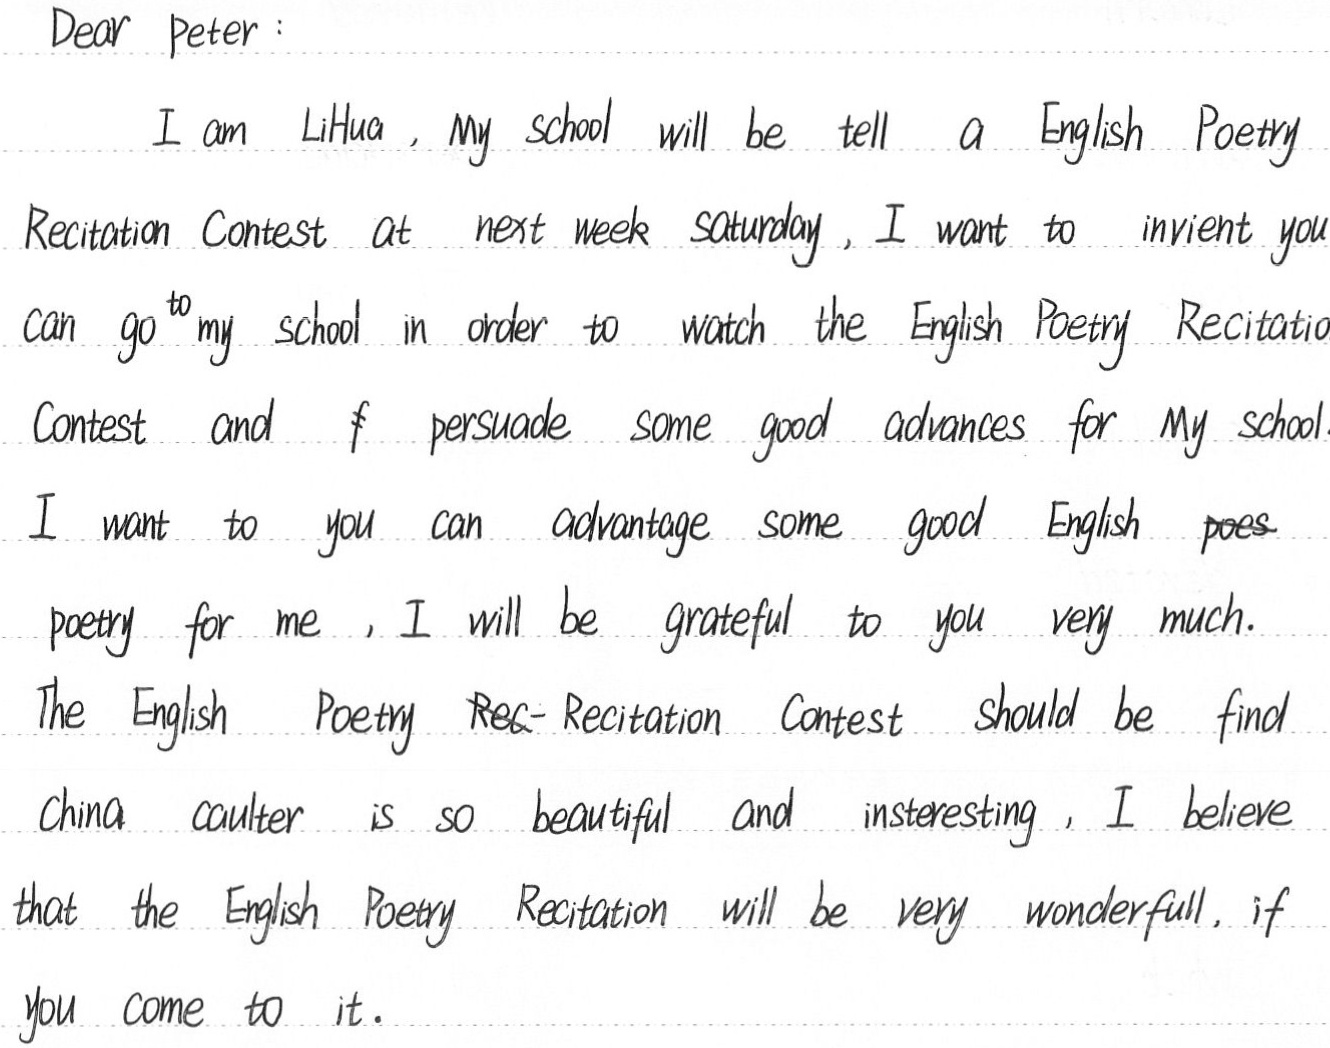 Dear Peter:
I am LiHua, My school will be tell a English Poetry
Recitation Contest at next week saturday, I want to invient you
can go to my school in order to watch the English Poetry Recitatio
Contest and persuade some good advances for My school.
I want to you can advantage some good English poes
poetry for me, I will be grateful to you very much.
The English Poetry Rec- Recitation Contest should be find
China caulter is so beautiful and insteresting, I believe
that the English Poetry Recitation will be very wonderfull, if
you come to it.